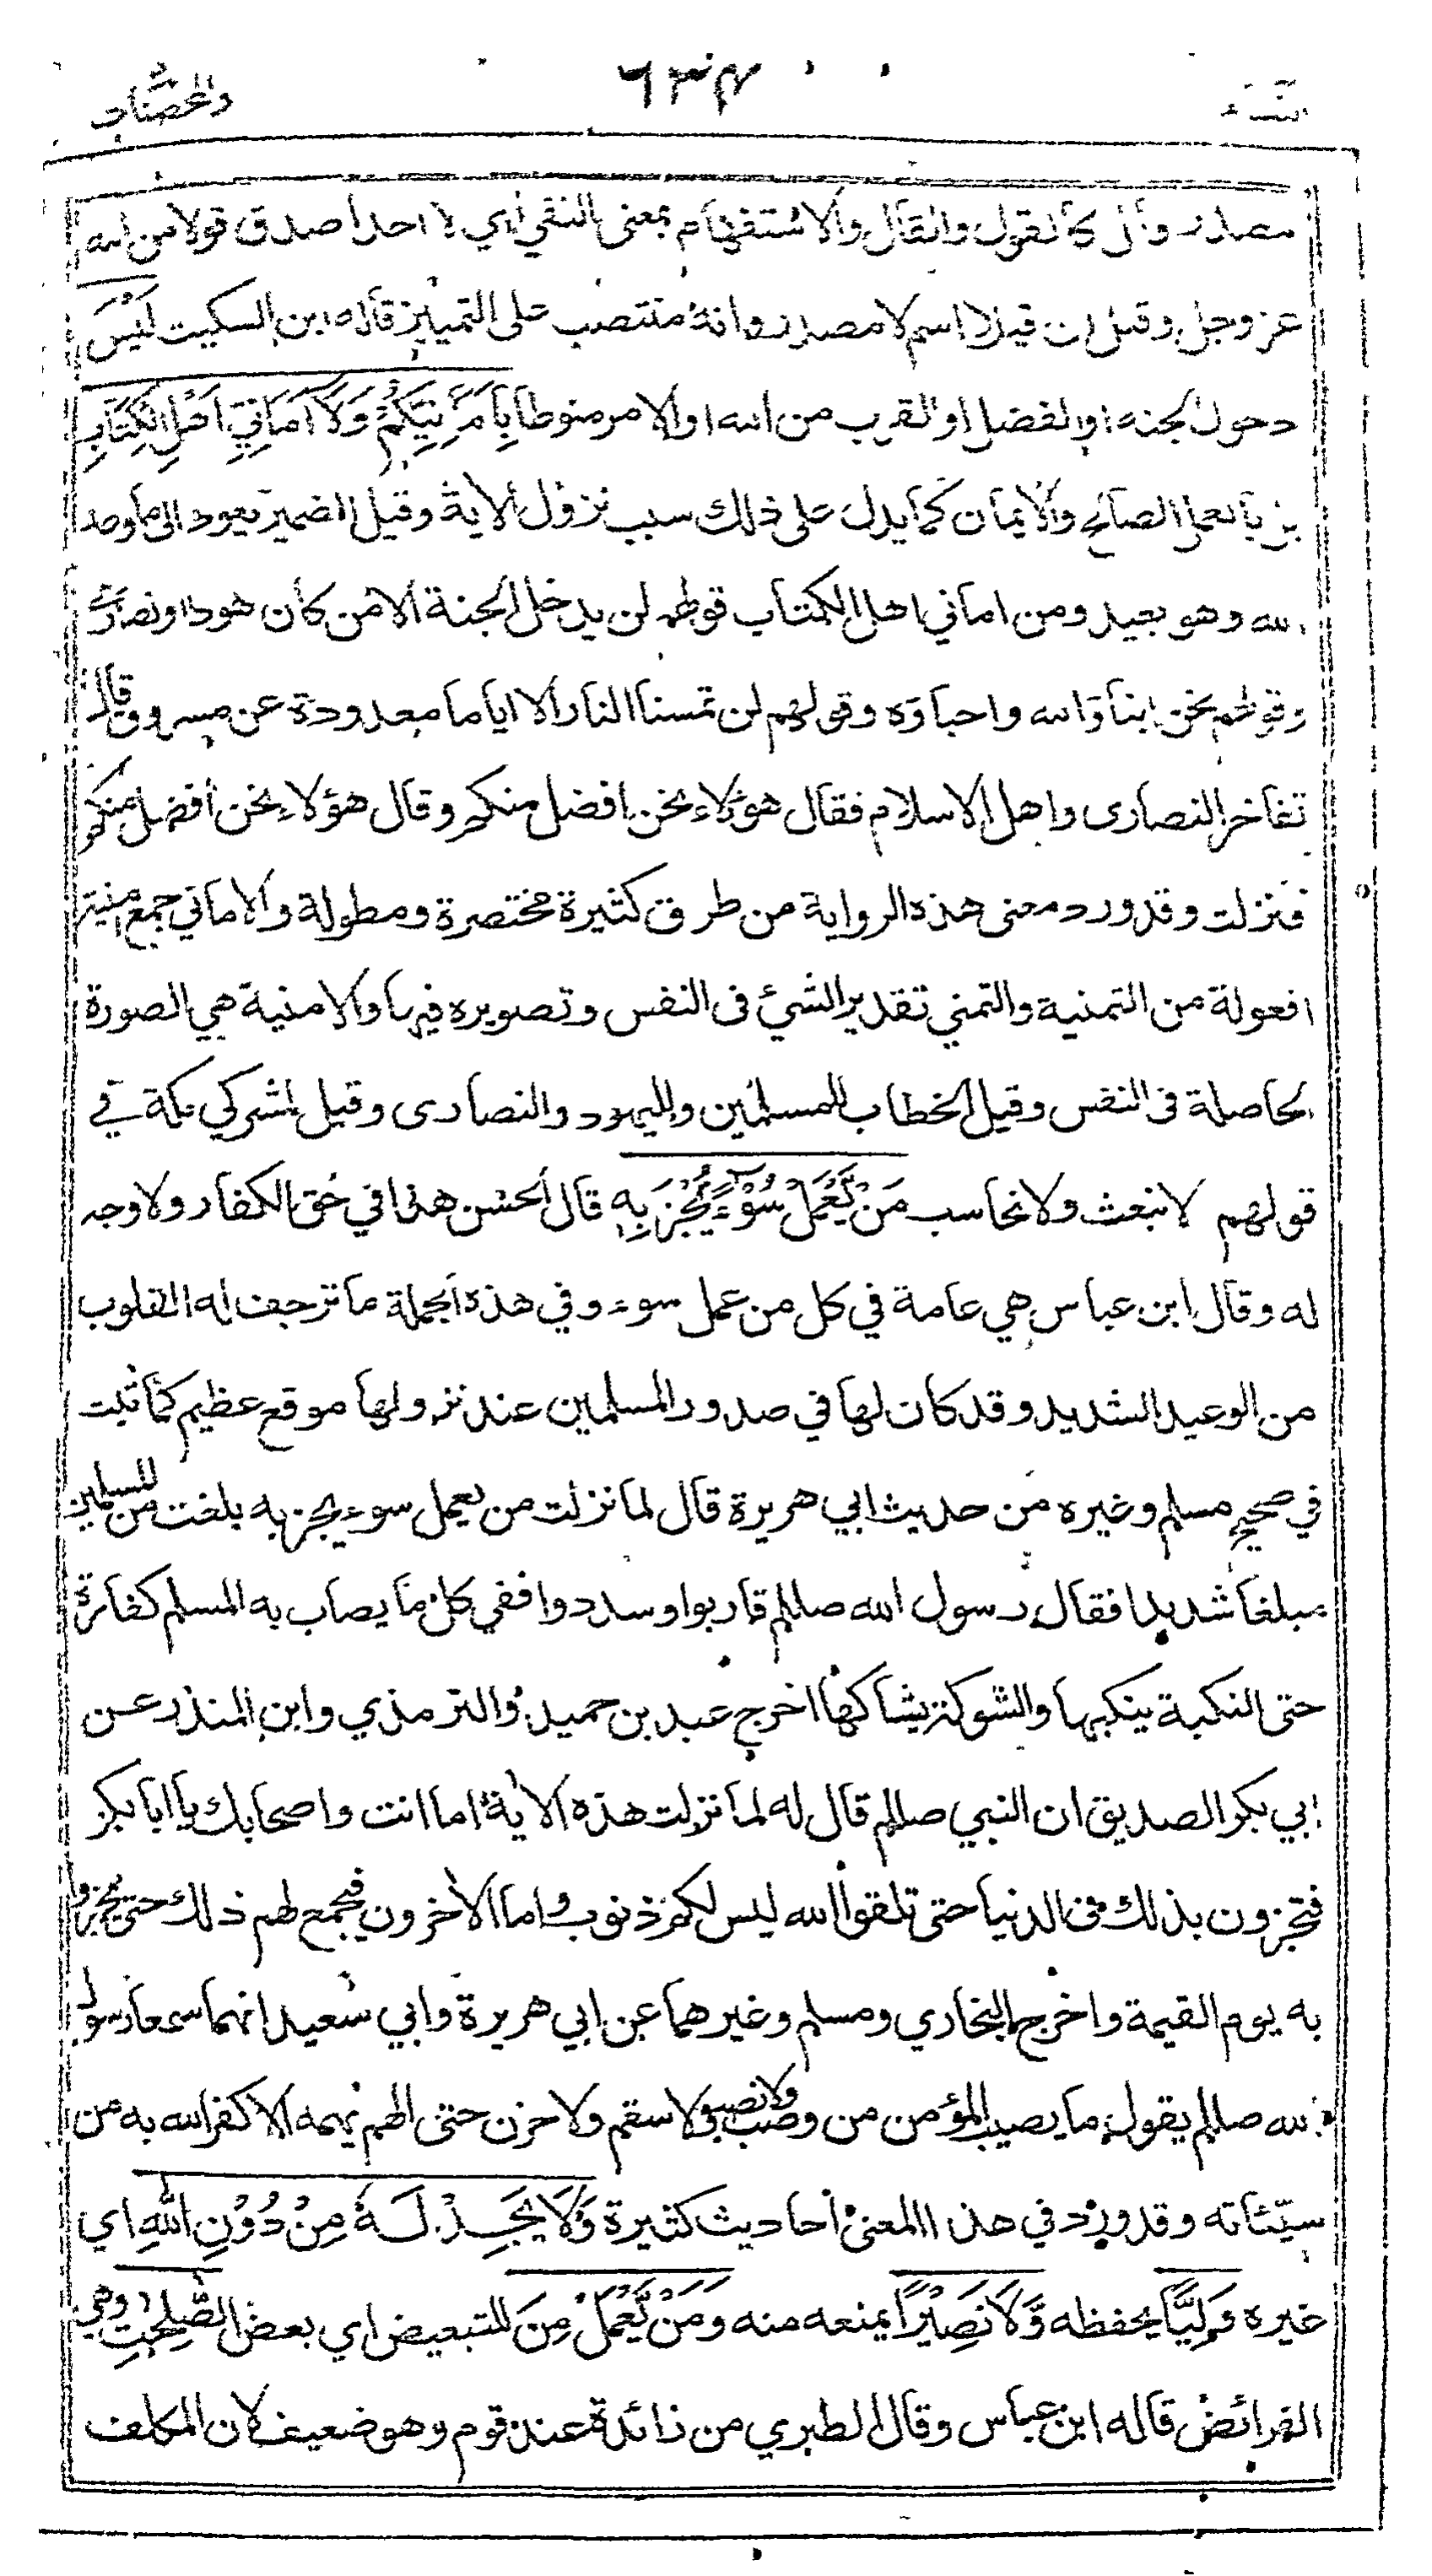 النساء ٦٣٤ والمحصنات
مصدر وقال كالقول والقال والاستفهام بمعنى النفي اي لا احد اصدق قولا من الله
عز وجل وقيل ان قيلا اسم لا مصدر وانه منتصب على التمييز قاله ابن السكيت لَيْسَ
دخول الجنه او الفضل او القرب من الله او الامر منوطا بِاَمَانِيِّكُمْ وَلَا اَمَانِيِّ اَهْلِ الْكِتَابِ
بل بالعمل الصالح والايمان كما يدل على ذلك سبب نزول الاية وقيل الضمير يعود الى ما وعد
الله وهو بعيد ومن اماني اهل الكتاب قولهم لن يدخل الجنة الا من كان هودا او نصارى
وقولهم نحن ابناؤ الله واحباؤه وقولهم لن تمسنا النار الا اياما معدودة عن مسروق قال
تفاخر النصارى واهل الاسلام فقال هؤلاء نحن افضل منكم وقال هؤلاء نحن افضل منكم
فنزلت وقد ورد معنى هذه الرواية من طرق كثيرة مختصرة ومطولة والاماني جمع امنية
افعولة من التمنية والتمني تقدير الشئ فى النفس وتصويره فيها والامنية هي الصورة
الحاصلة فى النفس وقيل الخطاب للمسلمين واليهود والنصارى وقيل لمشركي مكة في
قولهم لا نبعث ولا نحاسب مَنْ يَّعْمَلْ سُوْٓءً يُّجْزَ بِهٖ قال الحسن هذا في حق الكفار ولا وجه
له وقال ابن عباس هي عامة في كل من عمل سوء وفي هذه الجملة ما ترجف له القلوب
من الوعيد الشديد وقد كان لها في صدور المسلمين عند نزولها موقع عظيم كما ثبت
في صحيح مسلم وغيره من حديث ابي هريرة قال لما نزلت من يعمل سوء يجز به بلغت من المسلمين
مبلغا شديدا فقال رسول الله صللم قاربوا وسددوا ففي كل ما يصاب به المسلم كفارة
حتى النكبة ينكبها والشوكة يشاكها اخرج عبد بن حميد والترمذي وابن المنذر عن
ابي بكر الصديق ان النبي صللم قال له لما نزلت هذه الاية اما انت واصحابك يا ابا بكر
فتجزون بذلك فى الدنيا حتى تلقوا الله ليس لكم ذنوب واما الاخرون فيجمع لهم ذلك حتى يجزوا
به يوم القيمة واخرج البخاري ومسلم وغيرهما عن ابي هريرة وابي سعيد انهما سمعا رسول
الله صللم يقول ما يصيب المؤمن من وصب ولا نصب ولا سقم ولا حزن حتى الهم يهمه الا كفر الله به من
سيئاته وقد ورد في هذا المعنى احاديث كثيرة وَلَا يَجِدْ لَهٗ مِنْ دُوْنِ اللّٰهِ اي
غيره وَلِيًّا يحفظه وَّلَا نَصِيْرًا يمنعه منه وَمَنْ يَّعْمَلْ مِنَ للتبعيض اي بعض الصّٰلِحٰتِ وهي
الفرائض قاله ابن عباس وقال الطبري من زائدة عند قوم وهو ضعيف لان المكلف